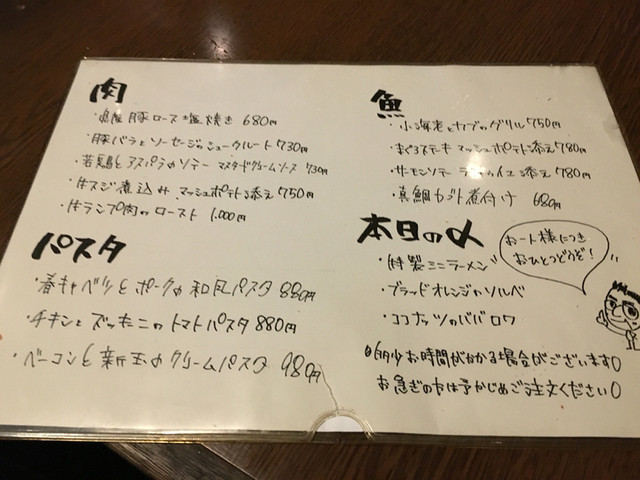 肉
・県産豚ロース塩焼き 680円
・豚バラとソーセージのシュークルート 730円
・若鶏とアスパラのソテー マスタードクリームソース 730円
・牛スジ煮込み マッシュポテト添え 750円
・牛ランプ肉のロースト 1,000円
パスタ
・春キャベツとポークの和風パスタ 880円
・チキンとズッキーニのトマトパスタ 880円
・ベーコンと新玉のクリームパスタ 980円
魚
・小海老とカブのグリル 750円
・まぐろステーキ マッシュポテト添え 780円
・サーモンソテー 添え 780円
・真鯛カブト煮付け 680円
本日のα
お一人様につき
おひとつどうぞ!
・特製ミニラーメン
・ブラッドオレンジのソルベ
・ココナッツのババロワ
多少お時間がかかる場合がございます
お急ぎの方は予かじめご注文ください